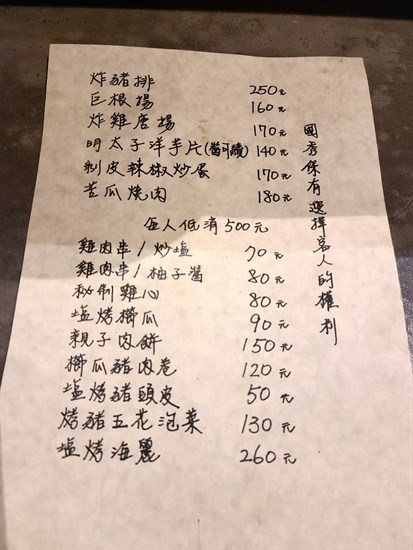 炸豬排 250元
巨根揚 160元
炸雞唐揚 170元
明太子洋芋片(醬可續) 140元
剝皮辣椒炒蛋 170元
苦瓜燒肉 180元
每人低消500元
雞肉串/炒塩 70元
雞肉串/柚子醬 80元
秘制雞心 80元
塩烤櫛瓜 90元
親子肉餅 150元
櫛瓜豬肉卷 120元
塩烤豬頭皮 50元
烤豬五花泡菜 130元
塩烤海麗 260元
國秀保有選擇客人的權利